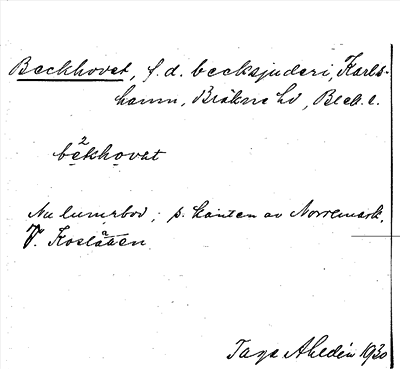 Beckhovet, f.d. becksjuderi, Karls-
hamn, Bräkne hd, Blek. l.
2
bękhovat
Nu lumrbod, s. kanten av Norremark,
V. Kosläten.
Tage Ahldén 1930